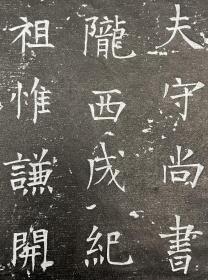 夫守尚書
隴西成紀
祖惟謙開